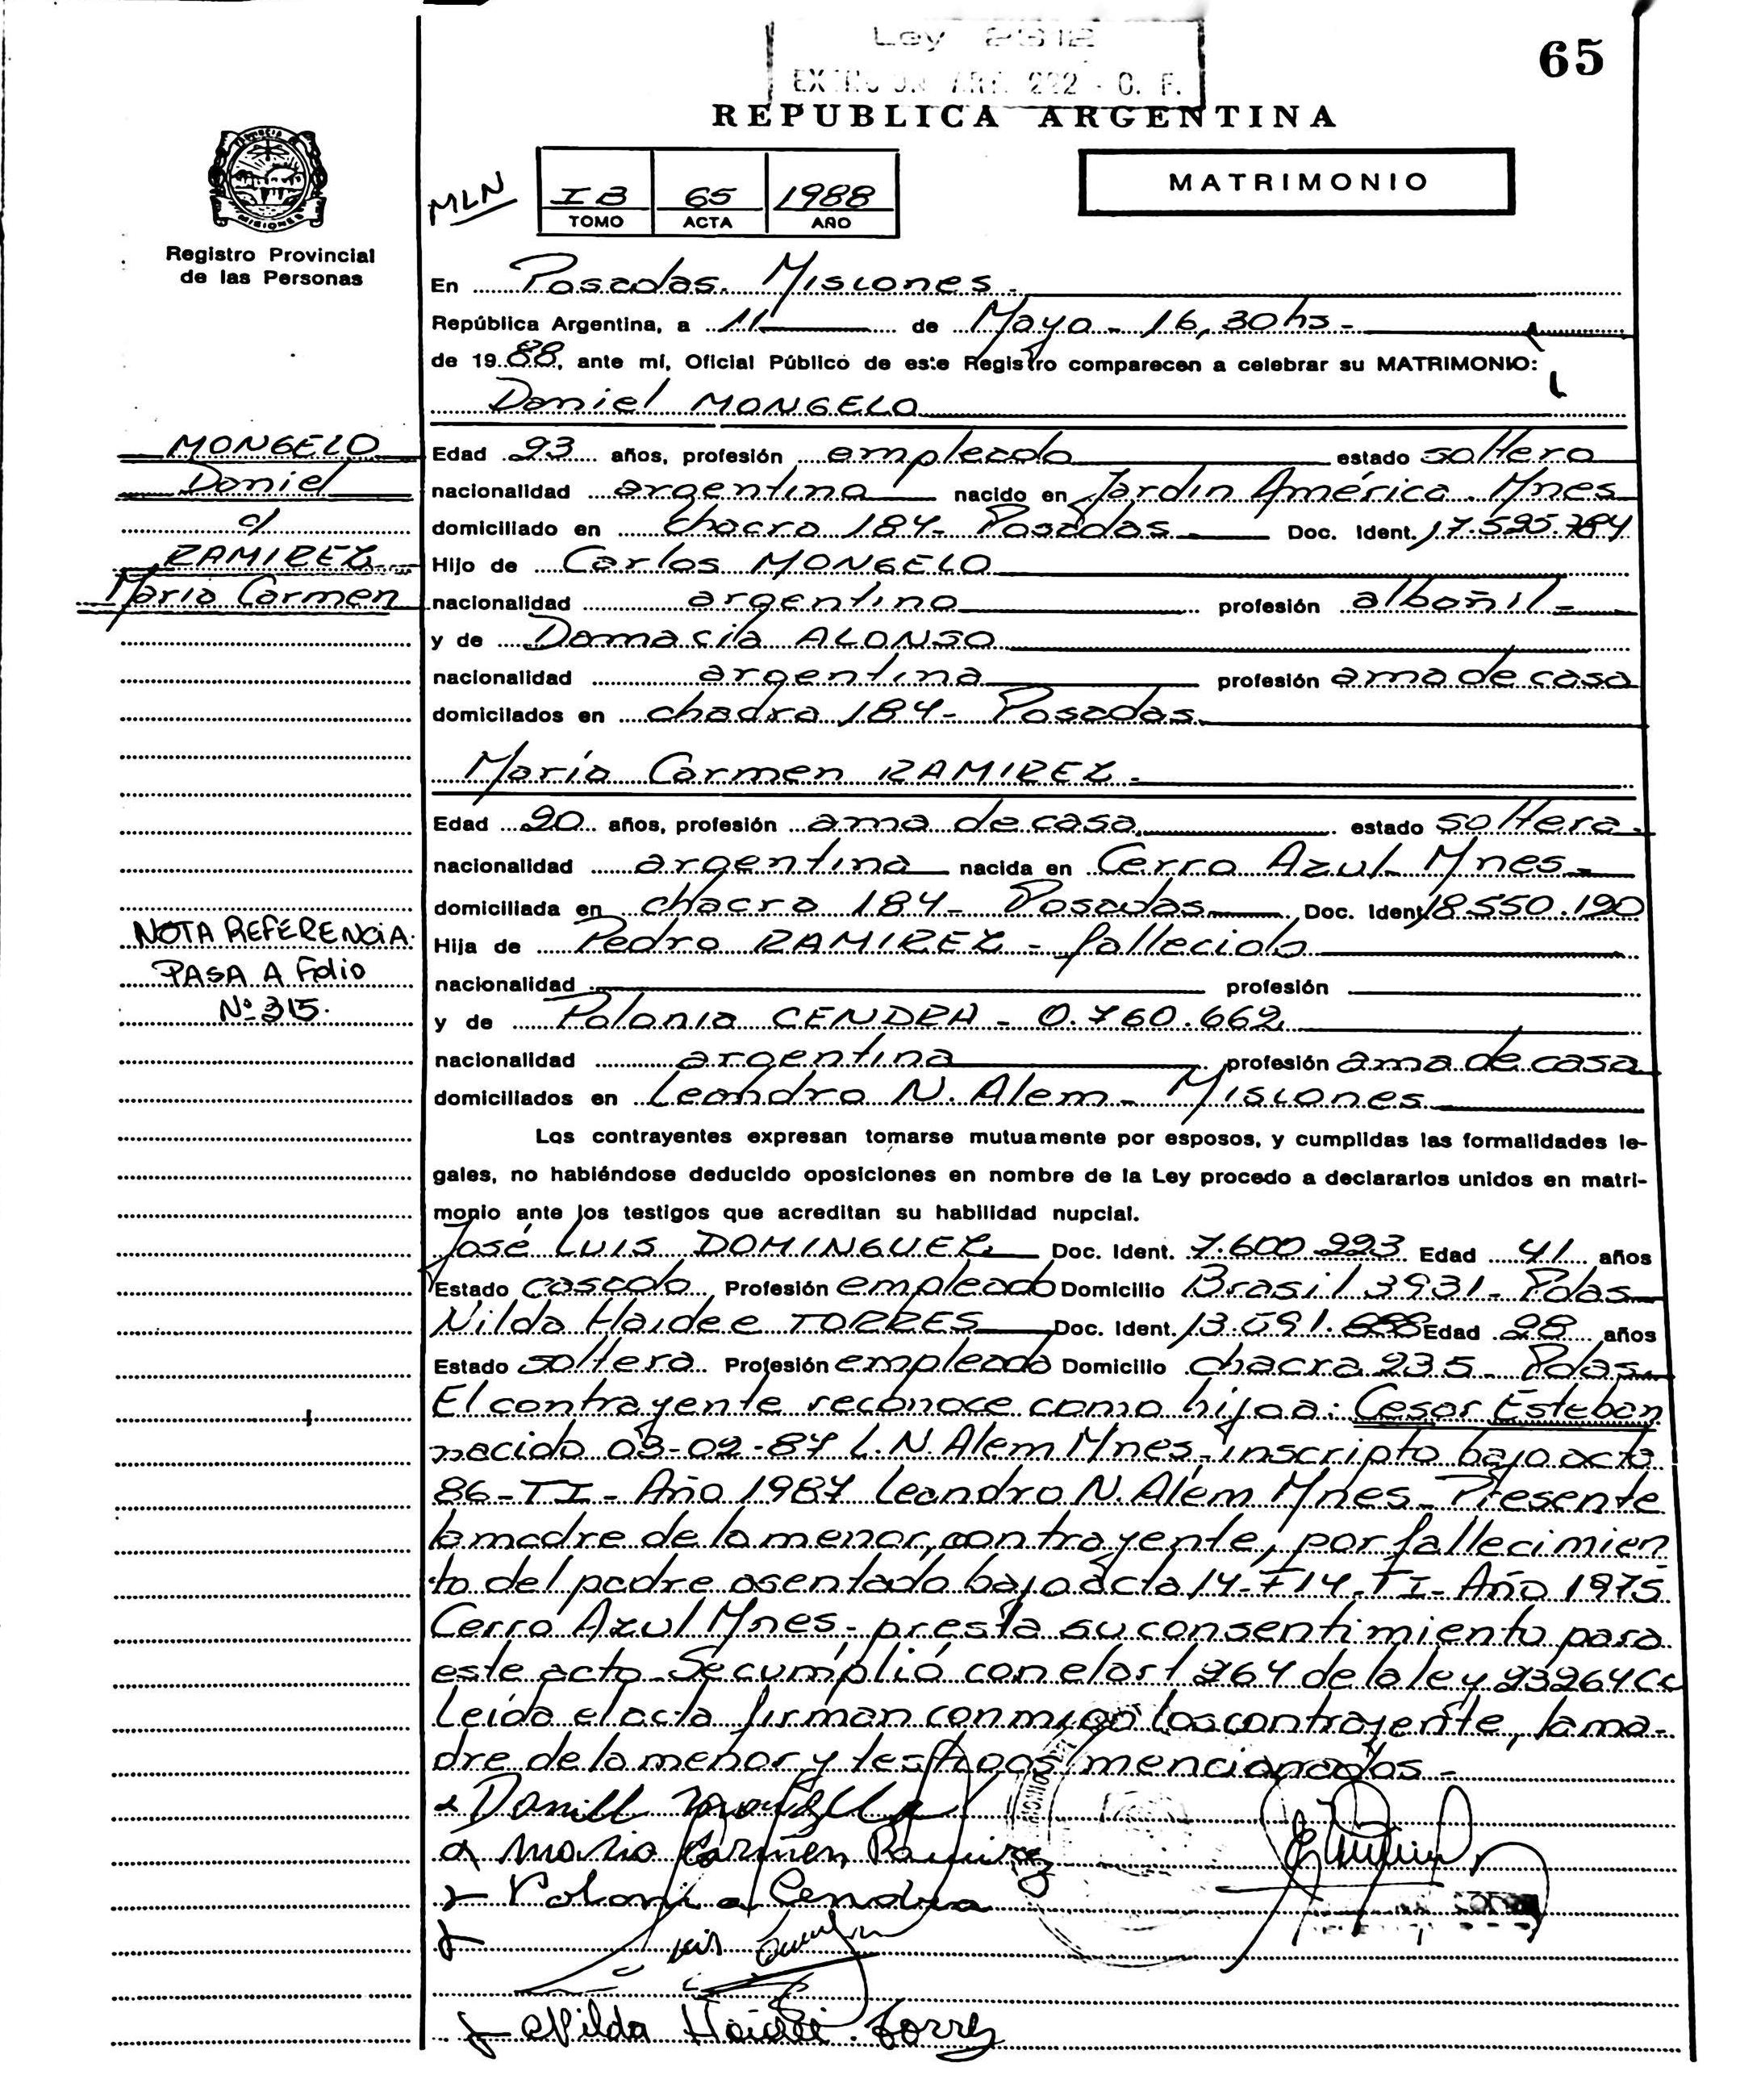 Ley 2612
ART. 292 - C. F.
65
REPUBLICA ARGENTINA
MLN
I B 65 1988
TOMO ACTA AÑO
MATRIMONIO
MISIONES
Registro Provincial
de las Personas
En Posadas. Misiones.
República Argentina, a 11 de Mayo - 16,30 hs -
de 19 88, ante mí, Oficial Público de este Registro comparecen a celebrar su MATRIMONIO:
Daniel MONGELO
MONGELO
Daniel
c/
RAMIREZ
María Carmen
Edad 23 años, profesión empleado estado soltero
nacionalidad argentina nacido en Jardín América. Mnes
domiciliado en chacra 184- Posadas Doc. Ident. 17.525.784
Hijo de Carlos MONGELO
nacionalidad argentino profesión albañil-
y de Damacia ALONSO
nacionalidad argentina profesión ama de casa
domicilados en chacra 184- Posadas
María Carmen RAMIREZ.
Edad 20 años, profesión ama de casa estado soltera
nacionalidad argentina nacida en Cerro Azul Mnes-
domiciliada en chacra 184- Posadas Doc. Ident 18.550.190
Hija de Pedro RAMIREZ - fallecido
nacionalidad profesión
y de Polonia CENDRA - 0.760.662
nacionalidad argentina profesión ama de casa
domiciliados en Leandro N. Alem - Misiones
NOTA REFERENCIA.
PASA A Folio
Nº 315.
Los contrayentes expresan tomarse mutuamente por esposos, y cumplidas las formalidades le-
gales, no habiéndose deducido oposiciones en nombre de la Ley procedo a declararlos unidos en matri-
monio ante los testigos que acreditan su habilidad nupcial.
José Luis DOMINGUEZ Doc. Ident. 7.600.223 Edad 41 años
Estado casado Profesión empleado Domicilio Brasil 3931- Pdas
Nilda Haidee TORRES Doc. Ident. 13.091.888 Edad 28 años
Estado soltera Profesión empleada Domicilio chacra 235 - Pdas
El contrayente reconoce como hijo a: Cesar Esteban
nacido 03-02-87 L.N. Alem Mnes- inscripto bajo acta
86-TI- Año 1987 Leandro N. Alem Mnes- Presente
la madre de la menor, contrayente, por fallecimien
to del padre asentado bajo acta 14-F14-TI- Año 1975
Cerro Azul Mnes- presta su consentimiento para
este acto- Se cumplió con el art 264 de la ley 23264 CC
Leída el acta firman conmigo los contrayente, la ma-
dre de la menor y testigos mencionados-
Daniel Mongelo
Maria Carmen Ramirez
Polonia Cendra
Nilda Haidee Torres